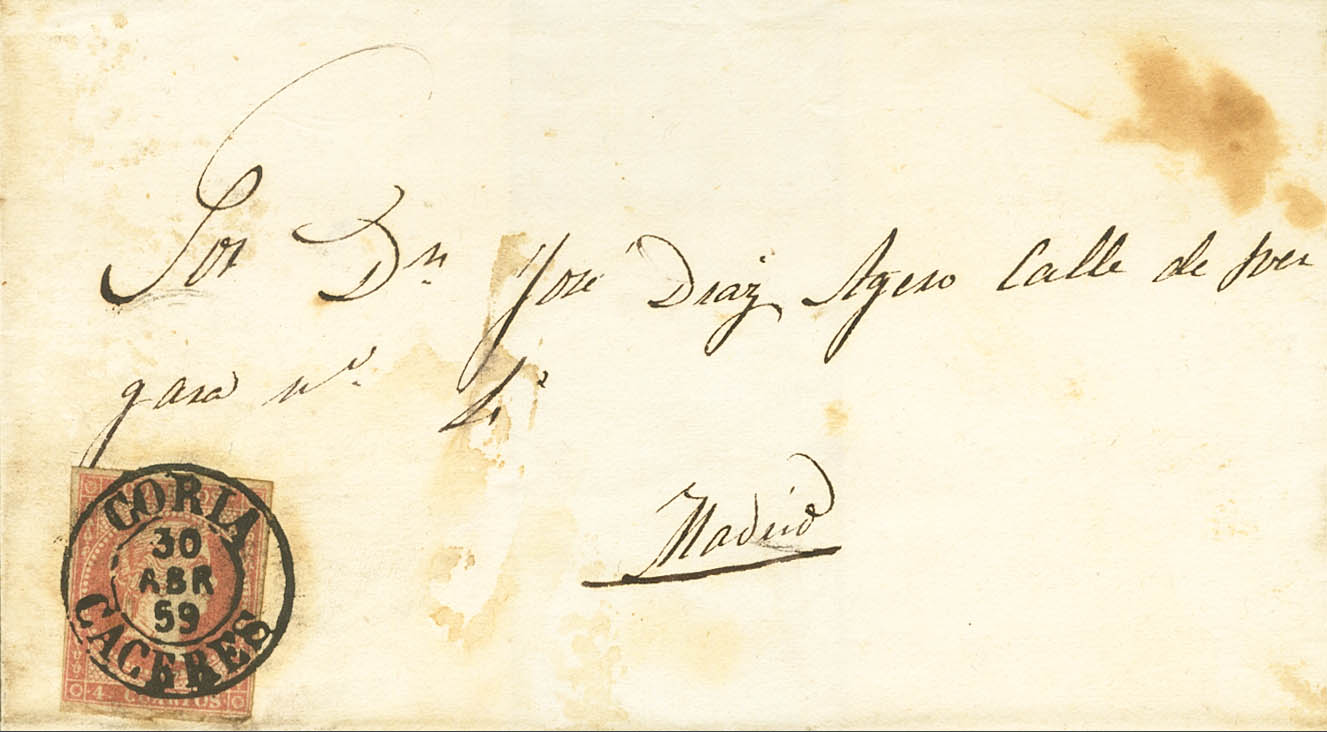 Sor Dn José Diaz Agero Calle de Ver
gara no 4o
Madrid
CORIA
30
ABR
59
CACERES
4 CUARTOS